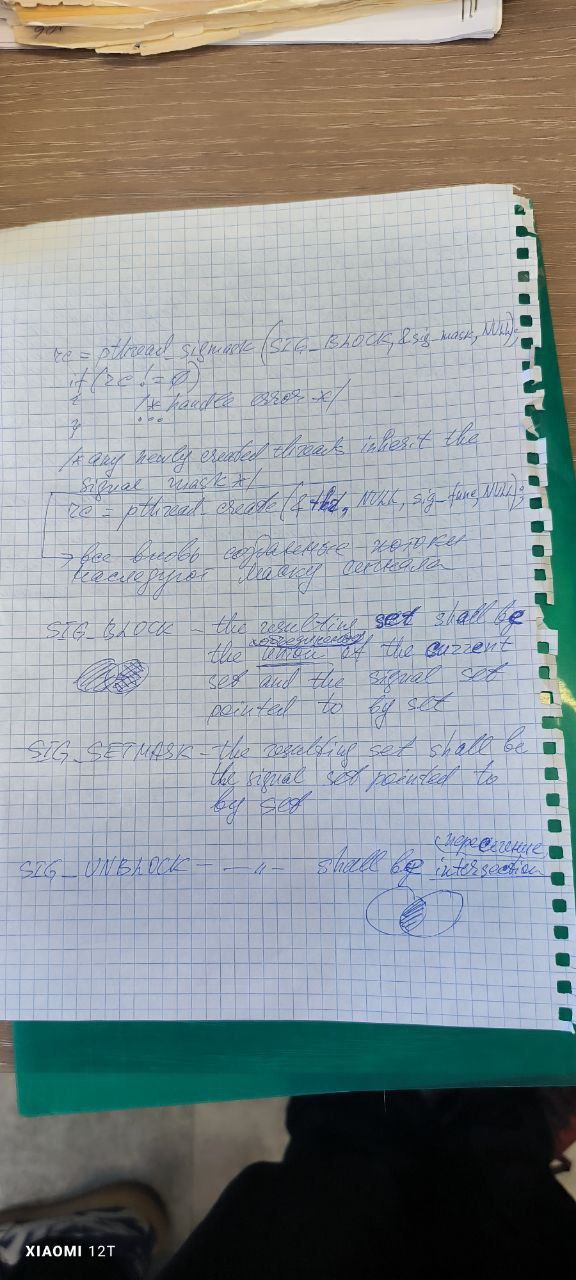 rc = pthread_sigmask (SIG_BLOCK, &sig_mask, NULL);
if (rc != 0)
{ /* handle error */
} ...
/* any newly created threads inherit the
signal mask */
rc = pthread_create (&thr, NULL, sig_func, NULL);
→ все вновь созданные потоки
наследуют маску сигнала
SIG_BLOCK – the resulting set shall be
объединение
the union of the current
set and the signal set
pointed to by set
SIG_SETMASK – the resulting set shall be
the signal set pointed to
by set
пересечение
SIG_UNBLOCK — — " — shall be intersection
XIAOMI 12T